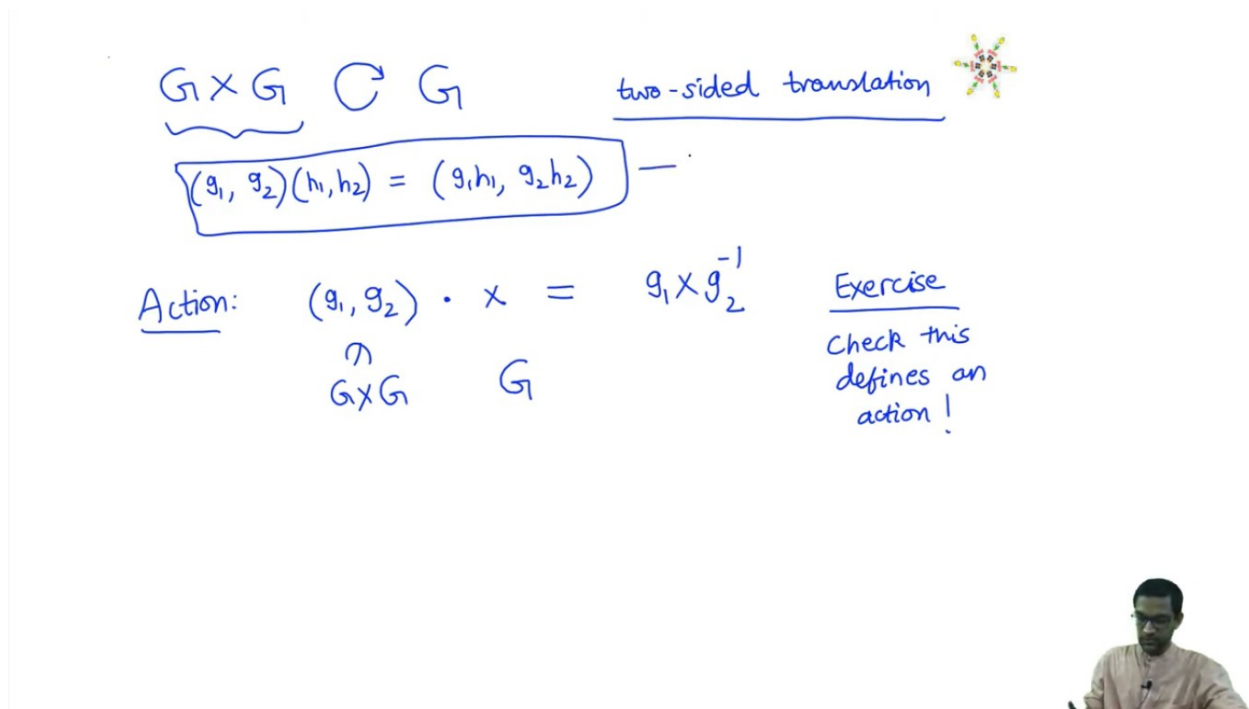 G×G ↻ G two-sided translation
(g₁, g₂)(h₁, h₂) = (g₁h₁, g₂h₂) —
Action: (g₁, g₂) · x = g₁xg₂⁻¹ Exercise
Check this
G×G G defines an
action!